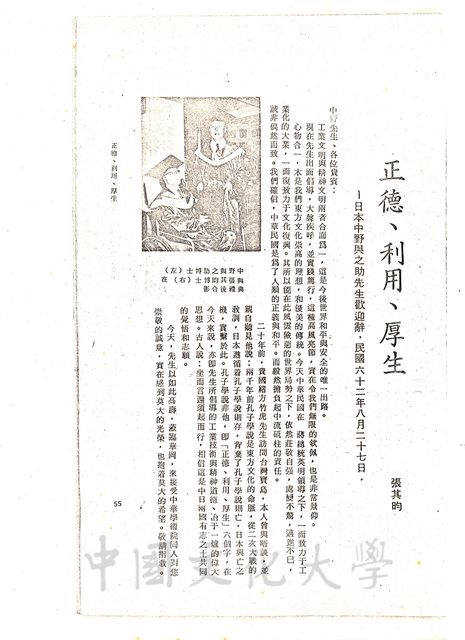 正德、利用、厚生
—日本中野與之助先生歡迎辭，民國六十二年八月二十七日，
張其昀
中野先生、各位貴賓：
工業文明與精神文明兩者合而為一，這是今後世界和平與安全的唯一出路。
現在先生出面倡導，大聲疾呼，並實踐篤行，這種高風亮節，實在令我們無限的欽佩，也是非常景仰。
心物合一，本是我們東方文化崇高的理想，和優美的傳統。今天中華民國在　蔣總統英明領導之下，一面致力于工
業化的大業，一面復致力于文化復興。其所以能在此風雲險惡的世界局勢之下，依然莊敬自強，處變不驚，邁進不已，
誠非偶然而致。我們確信，中華民國是為了人類的正義與和平。而毅然擔負起中流砥柱的責任。
二十年前，貴國緒方竹虎先生訪問台灣寶島，本人曾與晤談，並
親自聽見他說：兩千年前孔子學說是東方文化的命脈，從二次大戰的
教訓，日本遵循着孔子學說則存，背棄了孔子學說則亡，日本興亡之
機，實繫於此。孔子學說非他，即「正德、利用、厚生」六個字，在
今天來說，亦即先生所倡導的工業技術與精神道德，冶于一爐的偉大
思想。古人說：坐而言還須起而行，相信這是中日兩國有志之士共同
的覺悟和志願。
今天，先生以如此高壽，蒞臨華岡，來接受中華學術院同人對您
崇敬的誠意，實在感到莫大的光榮，也抱着莫大的希望。敬請指敎。
中野與之助博士（左）
與張其昀博士（右）在
典禮後的合影
正德、利用、厚生
55
中國文化大學